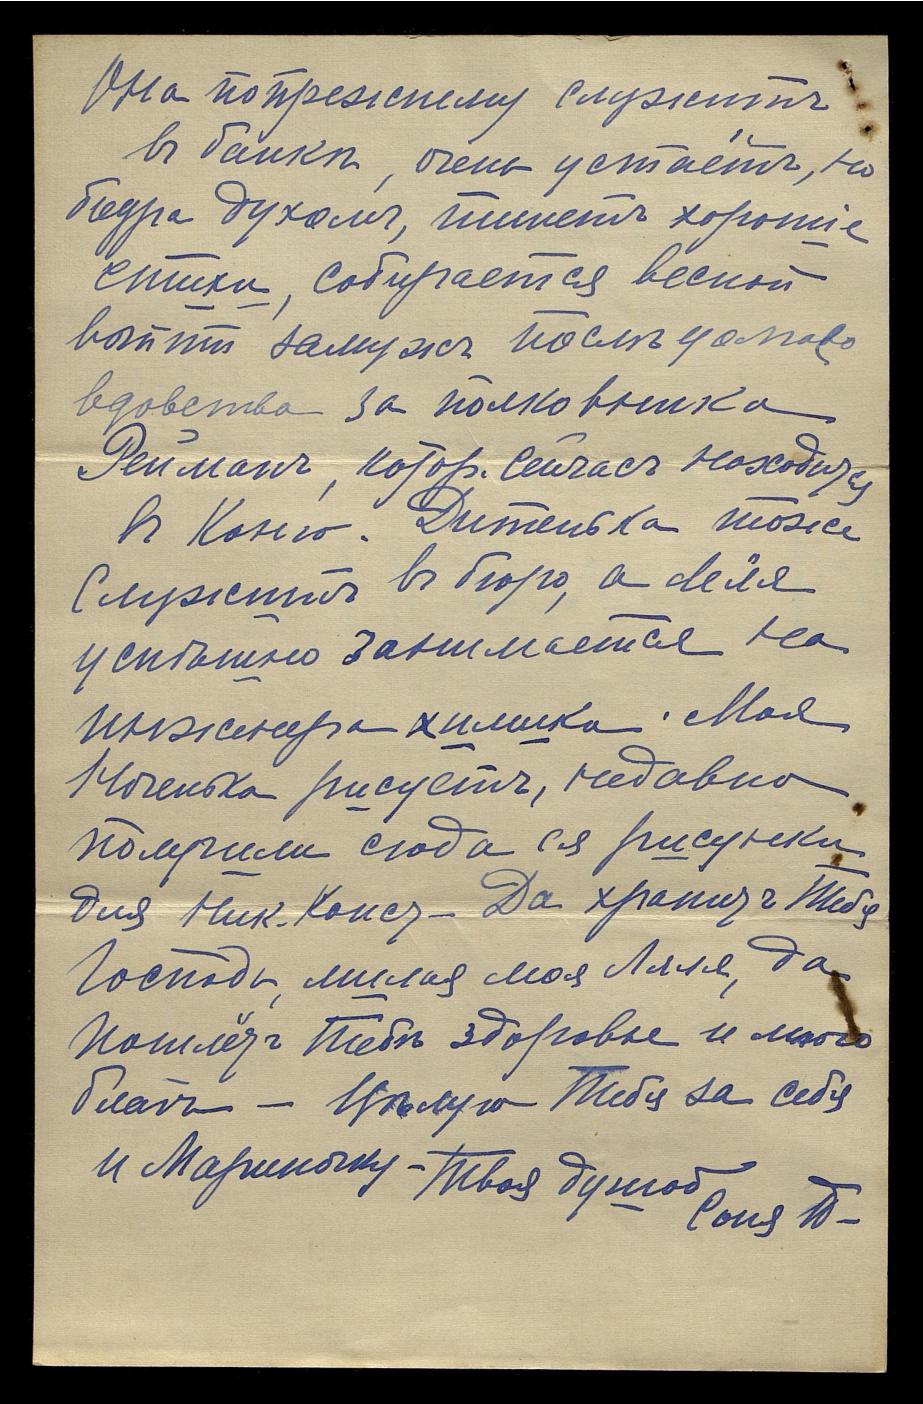 Она попрежнему служитъ
въ банкѣ, очень устаётъ, но
бодра духомъ, пишетъ хорошіе
стихи, собирается весной
выйти замужъ послѣ
вдовства за полковника
Рейманъ, котор. сейчасъ находится
въ Конго. Дитенька тоже
служитъ въ бюро, а Лёля
успѣшно занимается на
инженера химика. Моя
Ноченька рисуетъ, недавно
получили сюда ея рисунки
для Ник. Конст– Да хранитъ Тебя
Господь, милая моя Ляля, да
пошлётъ Тебѣ здоровье и много
благъ – Цѣлую Тебя за себя
и Мариночку – Твоя душой
Соня Т–